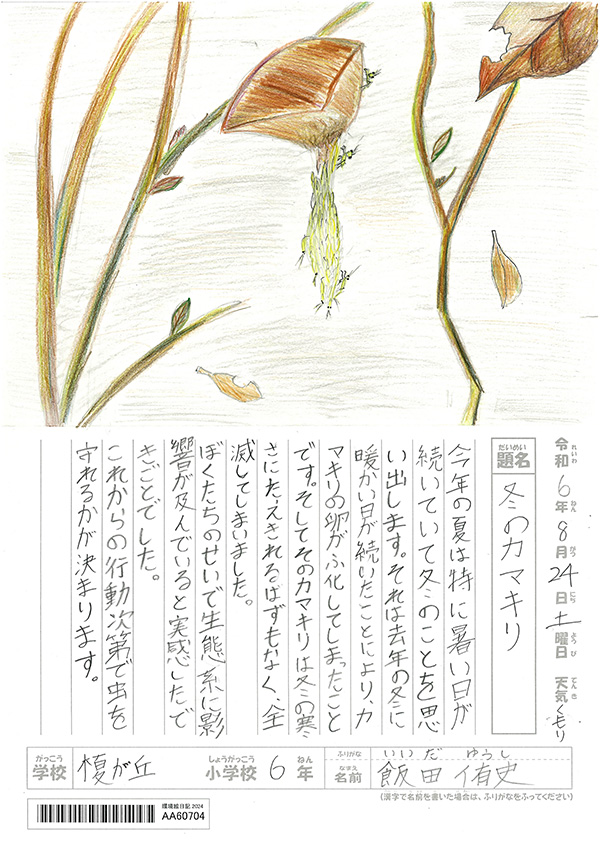 令和6年8月24日土曜日 天気くもり
れいわ ねん がつ にち ようび てんき
題名
だいめい
冬のカマキリ
今年の夏は特に暑い日が
続いていて冬のことを思
い出します。それは去年の冬に
暖かい日が続いたことにより、カ
マキリの卵がふ化してしまったこと
です。そしてそのカマキリは冬の寒
さにたえきれるはずもなく、全
滅してしまいました。
ぼくたちのせいで生態系に影
響が及んでいると実感したで
きごとでした。
これからの行動次第で虫を
守れるかが決まります。
がっこう しょうがっこう ねん
学校 榎が丘 小学校 6年
ふりがな いいだ ゆうし
なまえ
名前 飯田侑史
(漢字で名前を書いた場合は、ふりがなをふってください)
環境絵日記 2024
AA60704